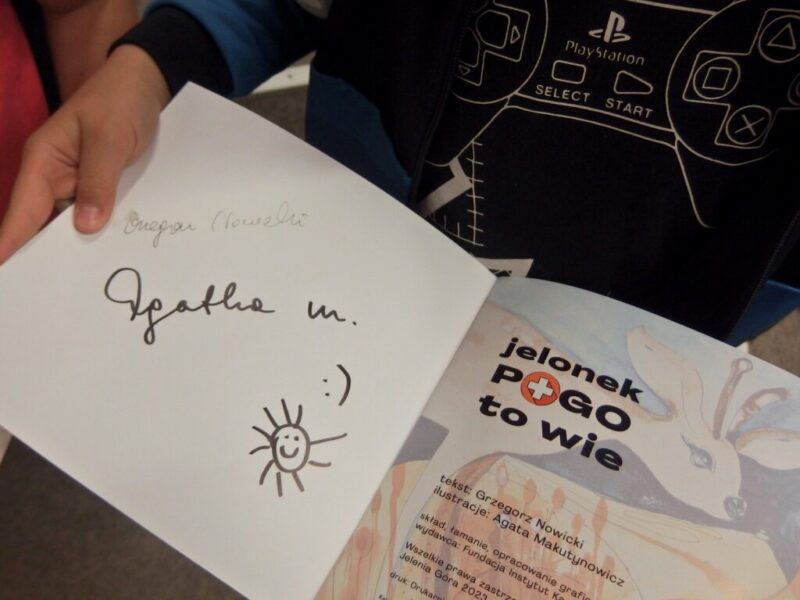 PlayStation
SELECT START
Grzegorz Nowicki
Agatka M.
:)
jelonek
POGO
to wie
tekst: Grzegorz Nowicki
ilustracje: Agata Makutynowicz
skład, łamanie, opracowanie grafic
wydawca: Fundacja Instytut Ka
Wszelkie prawa zastrze
Jelenia Góra 2023
druk: Drukarn